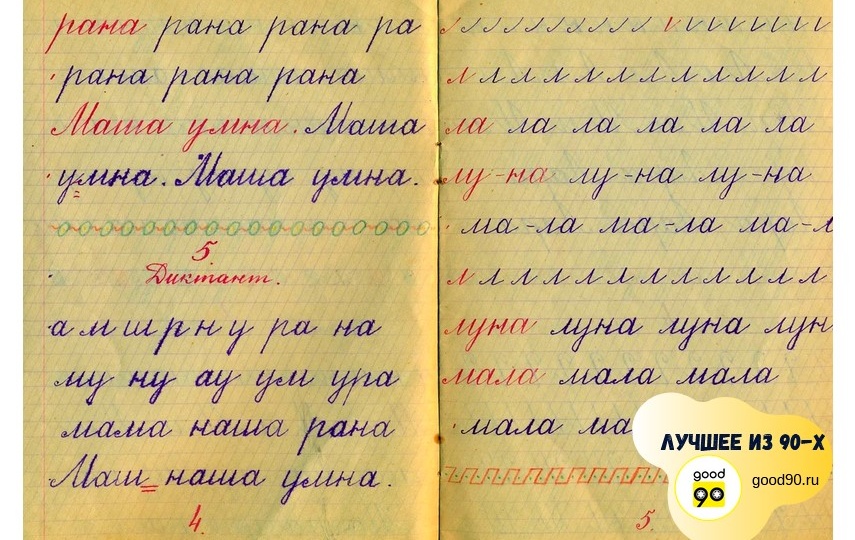 рана рана рана ра
рана рана рана
Маша умна. Маша
умна. Маша умна.
5
Диктант.
а м ш р н у ра на
му ну ау ум ура
мама наша рана
Маш_наша умна.
4.
л л л л л л л л л л л л
ла ла ла ла ла ла
лу-на лу-на лу-на
ма-ла ма-ла ма-л
л л л л л л л л л л л л
луна луна луна лун
мала мала мала
мала ма
5.
ЛУЧШЕЕ ИЗ 90-Х
good
90
good90.ru